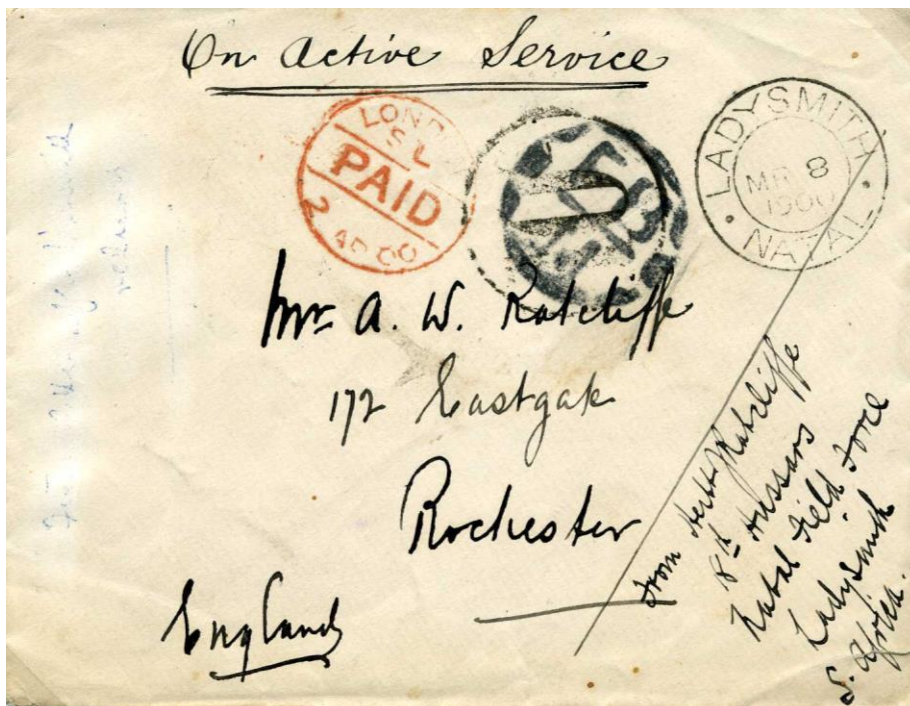 On Active Service
LOND
S L
PAID
2 AP 00
LADYSMITH
MR 8
1900
NATAL
Mr A. W. Ratcliffe
172 Eastgate
Rochester
England
From Herbt J Ratcliffe
18th Hussars
Natal Field Force
Ladysmith
S. Africa.